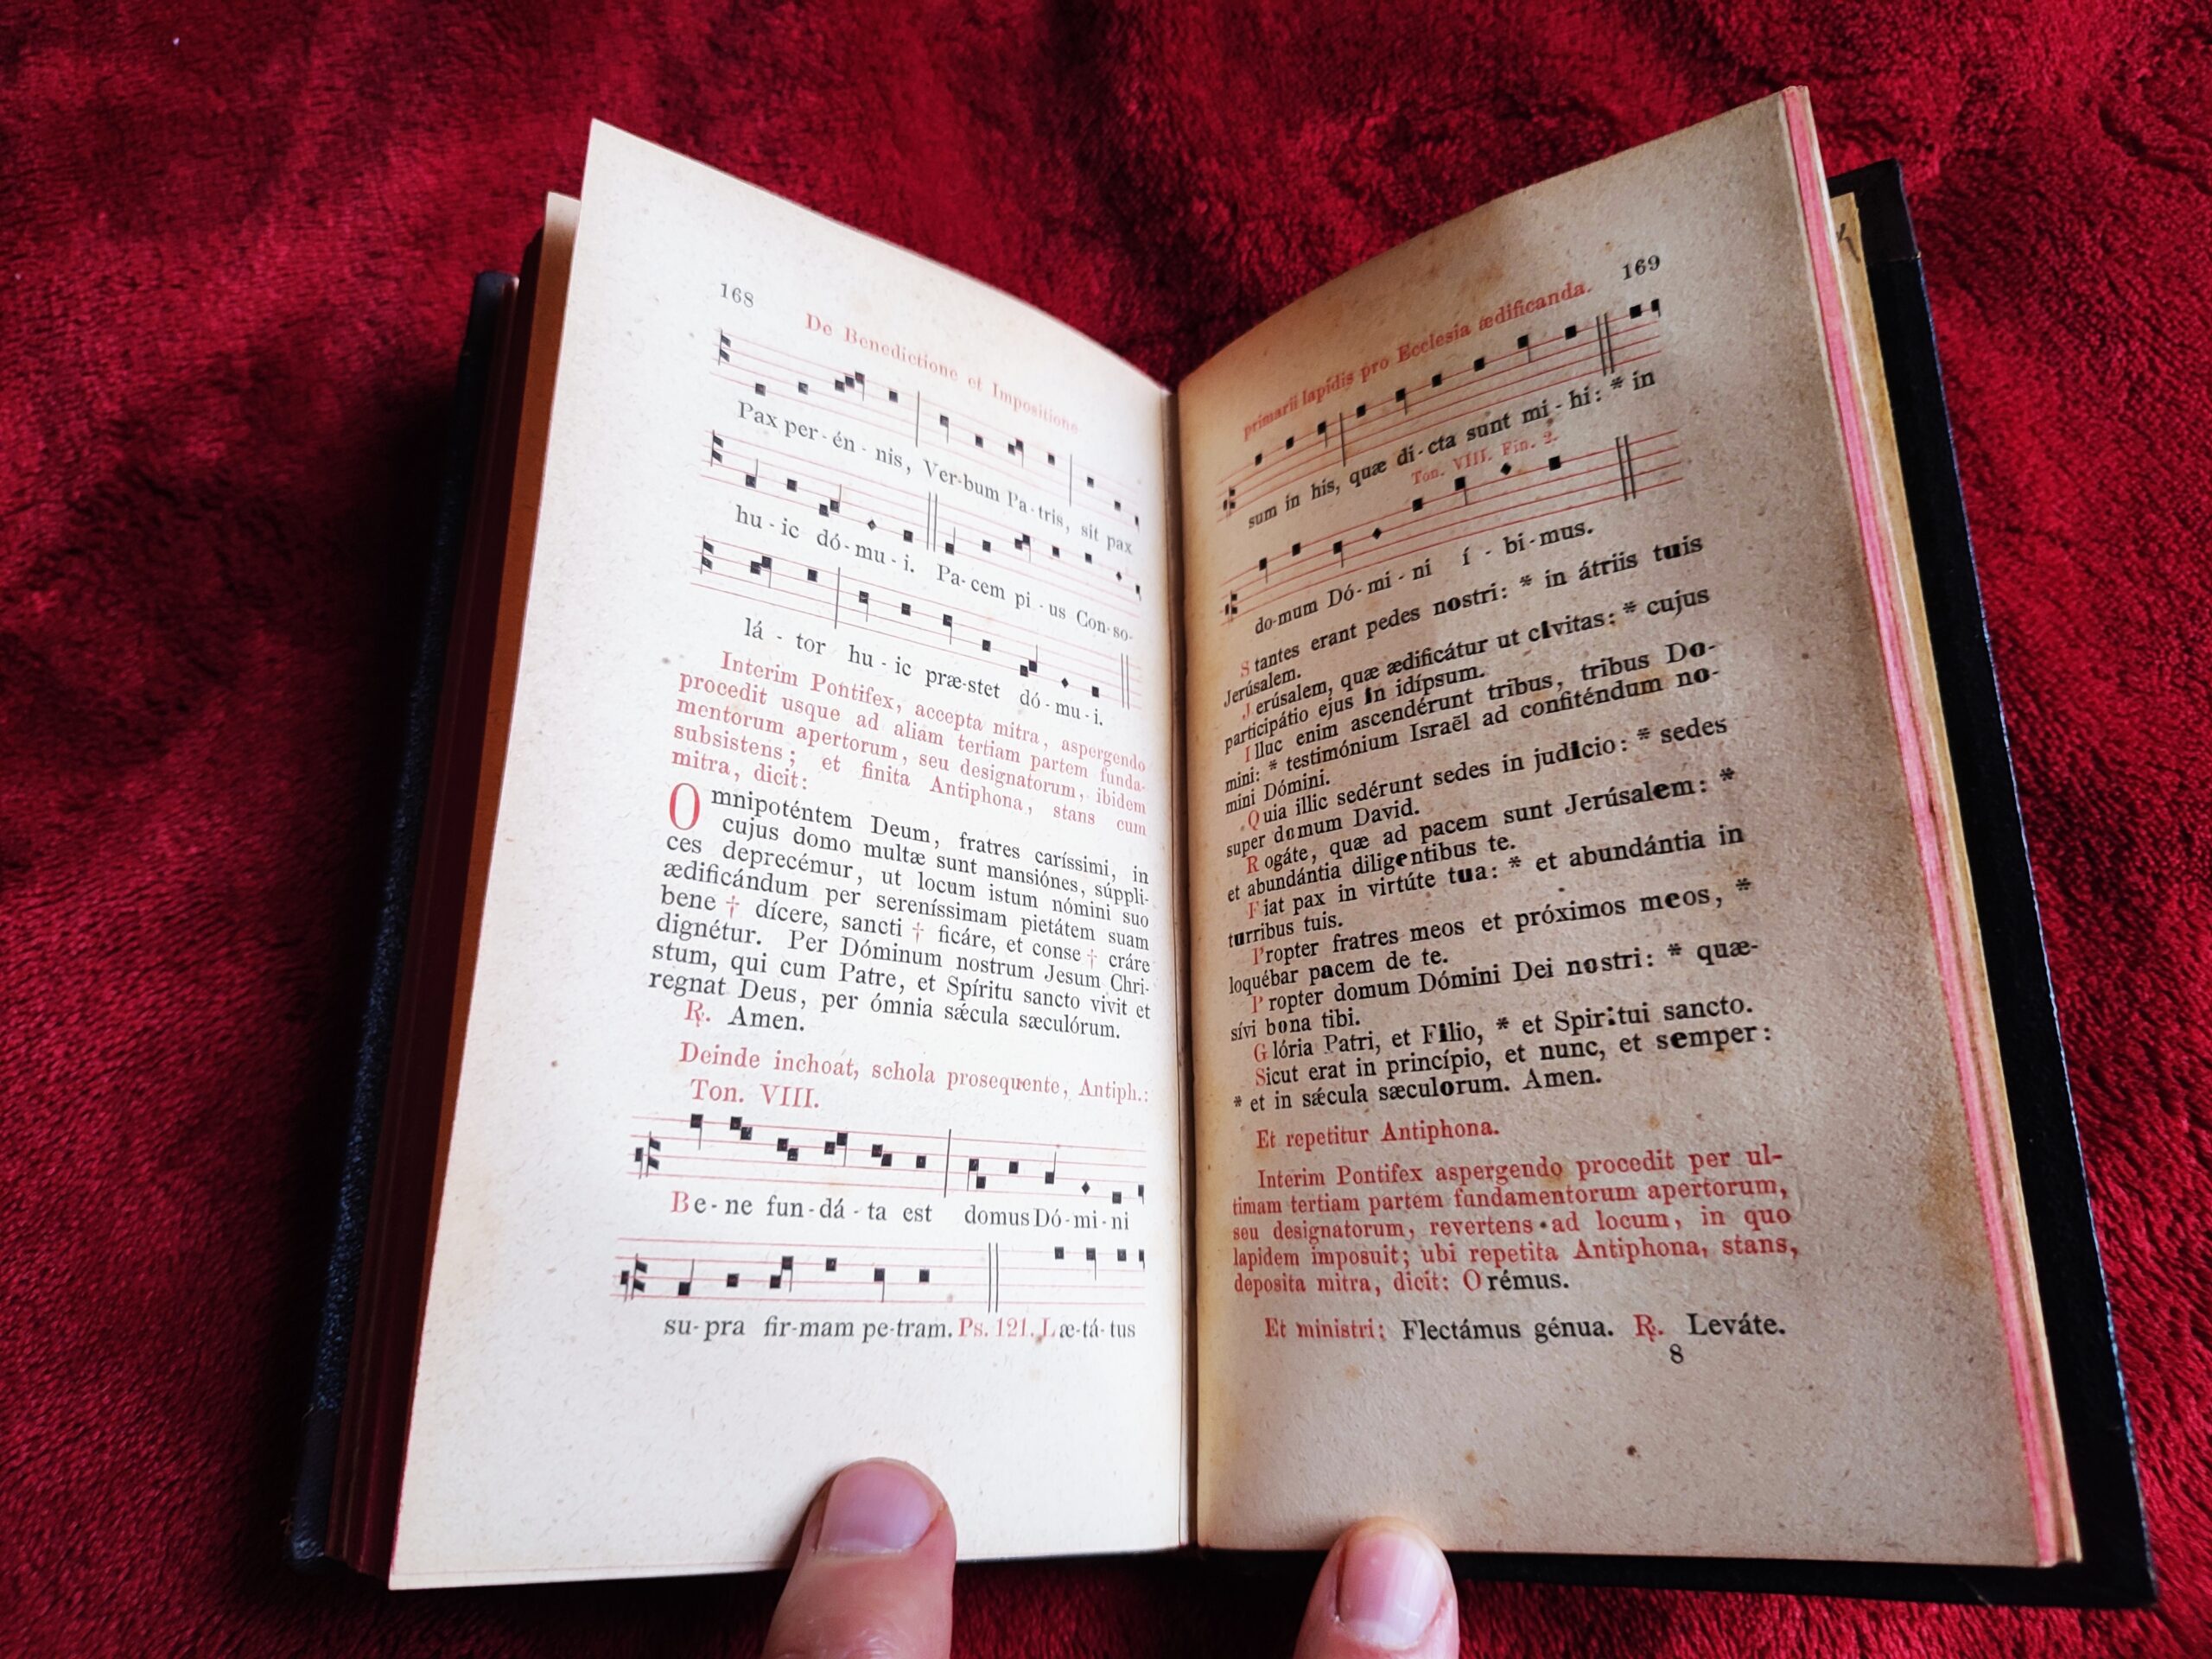 168
De Benedictione et Impositione
Pax per-én-nis, Verbum Pa-tris, sit pax
hu-ic dó-mu-i. Pa-cem pi-us Con-so-
lá-tor hu-ic præ-stet dó-mu-i.
Interim Pontifex, accepta mitra, aspergendo
procedit usque ad aliam tertiam partem funda-
mentorum apertorum, seu designatorum, ibidem
subsistens; et finita Antiphona, stans cum
mitra, dicit:
Omnipoténtem Deum, fratres caríssimi, in
cujus domo multæ sunt mansiónes, súppli-
ces deprecémur, ut locum istum nómini suo
ædificándum per sereníssimam pietátem suam
bene † dícere, sancti † ficáre, et conse † cráre
dignétur. Per Dóminum nostrum Jesum Chri-
stum, qui cum Patre, et Spíritu sancto vivit et
regnat Deus, per ómnia sǽcula sæculórum.
℟. Amen.
Deinde inchoat, schola prosequente, Antiph.:
Ton. VIII.
Be-ne fun-dá-ta est domus Dó-mi-ni
su-pra fir-mam pe-tram. Ps. 121. Læ-tá-tus
169
primarii lapidis pro Ecclesia ædificanda.
sum in his, quæ di-cta sunt mi-hi: * in
Ton. VIII. Fin. 2.
do-mum Dó-mi-ni í-bi-mus.
Stantes erant pedes nostri: * in átriis tuis
Jerúsalem.
Jerúsalem, quæ ædificátur ut civitas: * cujus
participátio ejus in idípsum.
Illuc enim ascendérunt tribus, tribus Do-
mini: * testimónium Israël ad confiténdum no-
mini Dómini.
Quia illic sedérunt sedes in judicio: * sedes
super domum David.
Rogáte, quæ ad pacem sunt Jerúsalem: *
et abundántia diligentibus te.
Fiat pax in virtúte tua: * et abundántia in
turribus tuis.
Propter fratres meos et próximos meos, *
loquébar pacem de te.
Propter domum Dómini Dei nostri: * quæ-
sívi bona tibi.
Glória Patri, et Filio, * et Spiritui sancto.
Sicut erat in princípio, et nunc, et semper:
* et in sǽcula sæculorum. Amen.
Et repetitur Antiphona.
Interim Pontifex aspergendo procedit per ul-
timam tertiam partem fundamentorum apertorum,
seu designatorum, revertens ad locum, in quo
lapidem imposuit; ubi repetita Antiphona, stans,
deposita mitra, dicit: Orémus.
Et ministri: Flectámus génua. ℟. Leváte.
8